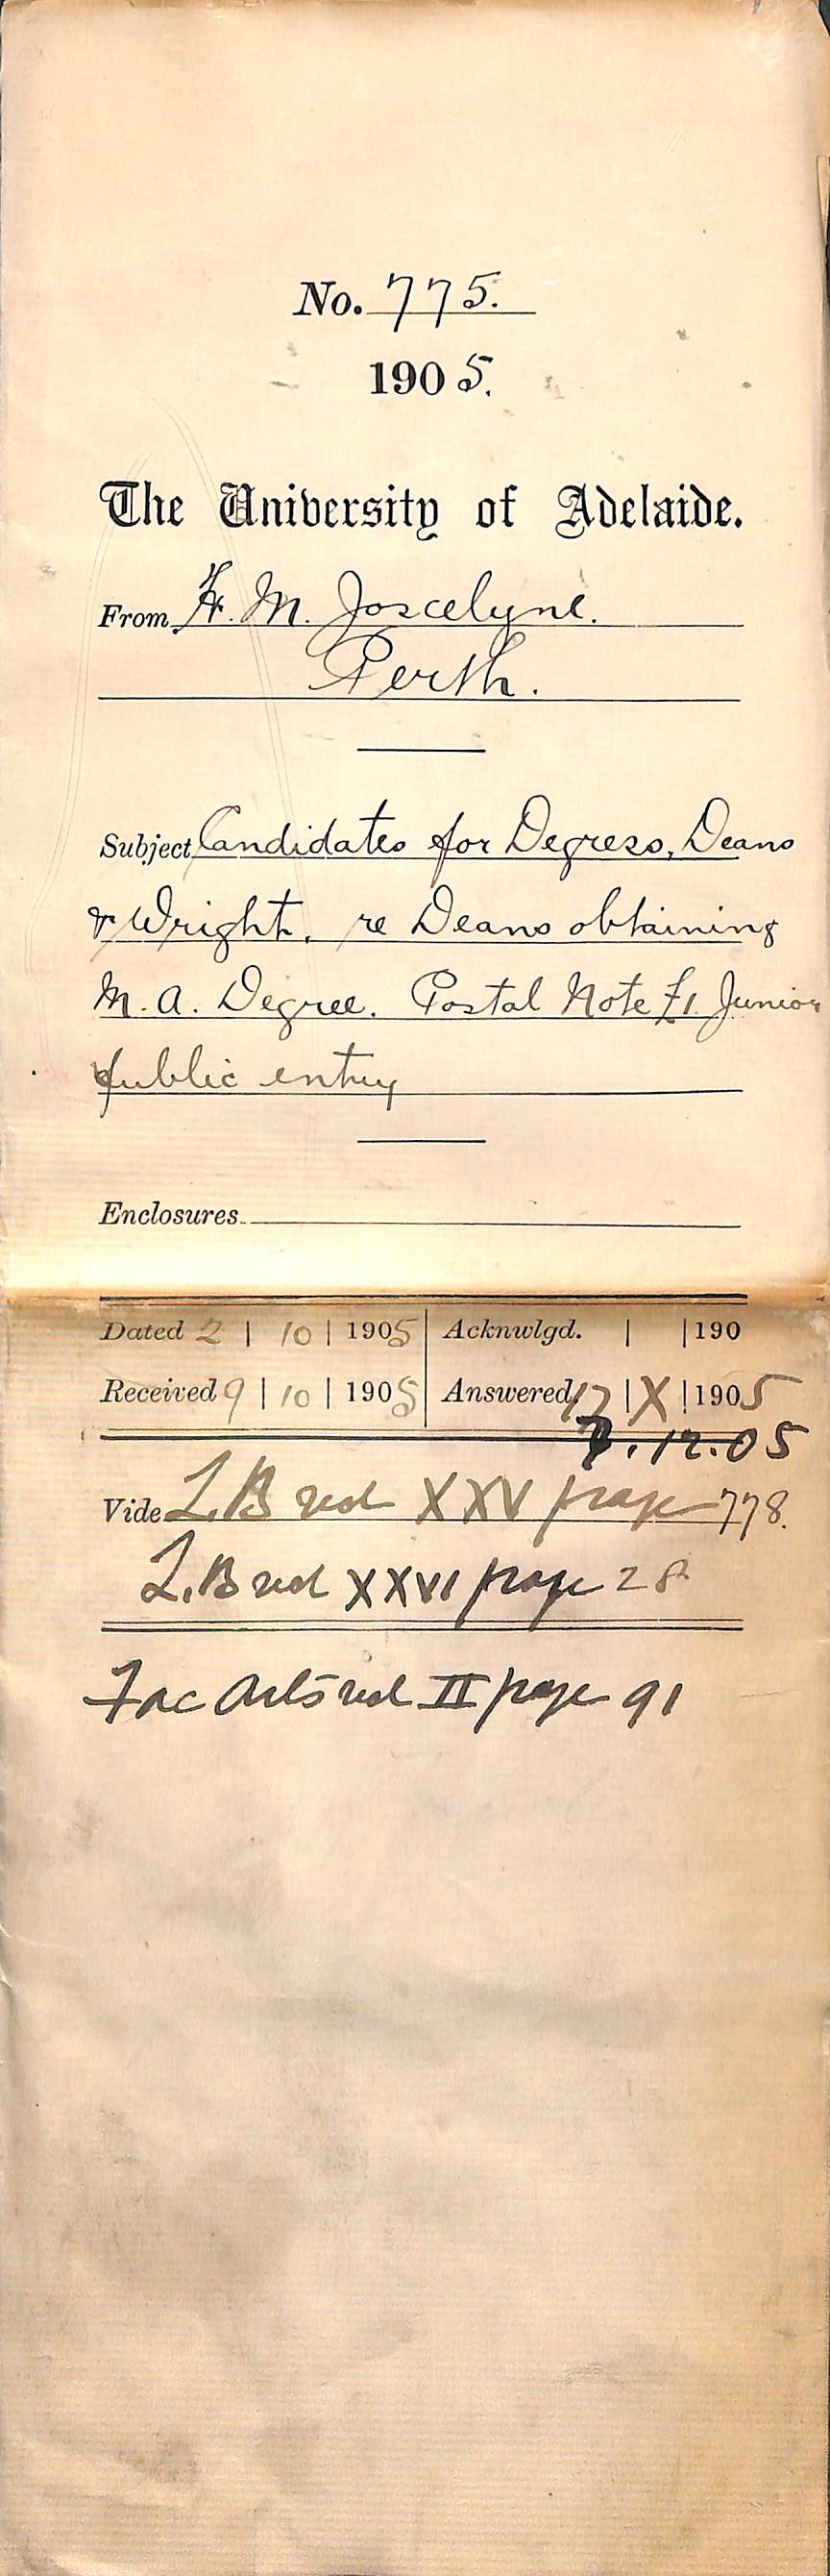 No. 775.
1905.
The University of Adelaide.
From H. M. Joscelyne.
Perth.
Subject Candidates for Degrees, Deans
& Wright. re Deans obtaining
M.A. Degree. Postal Note £1 Junior
public entry
Enclosures
Dated 2 | 10 | 1905 | Acknwlgd. | | 190
Received 9 | 10 | 1905 | Answered 17 | X | 1905
7.12.05
Vide L.B vol XXV page 778.
L.B vol XXVI page 28
Fac Arts vol II page 91